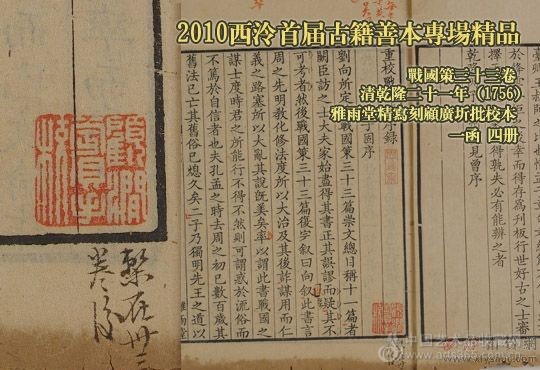 2010西泠首届古籍善本專場精品
戰國策三十三卷
清乾隆二十一年 (1756)
雅雨堂精寫刻顧廣圻批校本
一函 四册
幸而得存爲刊板行世好古之士審
孰失必有能辨之者
見曾序
重校戰國策序録
子固序
劉向所定戰國策三十三篇崇文總目稱十一篇者
闕臣訪之士大夫家始盡得其書正其誤謬而疑其不
可考者然後戰國策三十三篇復完叙曰向叙此書言
周之先明教化修法度所以大治及其後詐謀用而仁
義之路塞所以大亂其說旣美矣卒以謂此書戰國之
謀士度時君之所能行不得不然則可謂惑於流俗而
不篤於自信者也夫孔孟之時去周之初已數百歲其
舊法已亡其舊俗已熄久矣二子乃獨明先王之道以
雅雨堂
顧澗薲手校